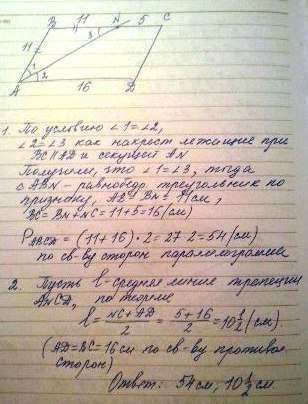 B 11 N 5 C
11 3
1
2
A 16 D
1. По условию ∠1=∠2,
∠2=∠3 как накрест лежащие при
BC∥AD и секущей AN
Получили, что ∠1=∠3, тогда
△ABN – равнобедр. треугольник по
признаку, AB=BN=11см,
BC=BN+NC=11+5=16(см)
P = (11+16)·2=27·2=54(см)
по св-ву сторон параллелограмма
2. Пусть l-средняя линия трапеции
ANCD, по теореме
l = NC+AD/2 = 5+16/2 = 10½(см).
(AD=BC=16см по св-ву противоп.
сторон)
Ответ: 54см, 10½см